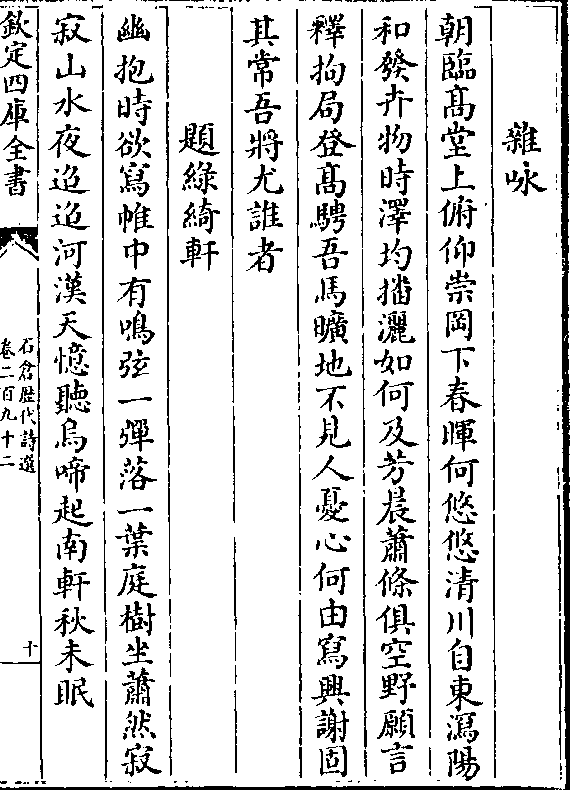 雜咏
朝臨髙堂上俯仰崇岡下春暉何悠悠清川自東瀉陽
和發卉物時澤均播灑如何及芳晨蕭條俱空野願言
釋拘局登髙騁吾馬曠地不見人憂心何由寫興謝固
其常吾將尤誰者
題綠綺軒
幽抱時欲寫帷中有鳴弦一彈落一葉庭樹坐蕭然寂
寂山水夜迢迢河漢天憶聽烏啼起南軒秋未眠
欽定四庫全書
石倉歷代詩選
卷二百九十二
十